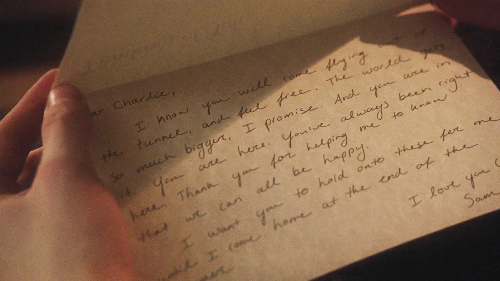 ar Charlie,
I know you will come flying out of
the tunnel, and feel free. The world gets
so much bigger, I promise. And you are in
it. You are here. You've always been right
here. Thank you for helping me to know
that we can all be happy.
I want you to hold onto these for me
until I come home at the end of the
I love you
Sam